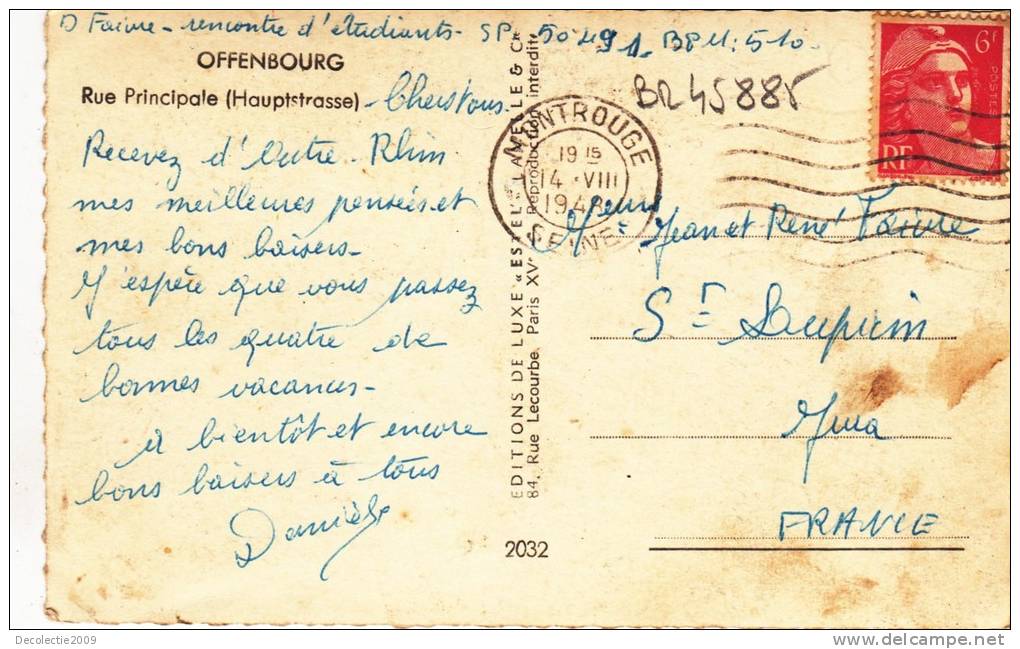 D Faivre - rencontre d'étudiants - SP 50491 - BPM: 510.
OFFENBOURG
Rue Principale (Hauptstrasse) - Chers tous -
Recevez d'Outre-Rhin
mes meilleures pensées et
mes bons baisers -
J'espère que vous passez
tous les quatre de
bonnes vacances -
à bientôt et encore
bons baisers à tous
Danièle
EDITIONS DE LUXE « ESTEL » LAVELLE & Cie
84, Rue Lecourbe, Paris XVe Reproduction interdite
2032
BR45885
MONTROUGE
19 15
14 VIII
194
SEINE
6f
POSTES
RF
Jean et René Faivre
St Laupicin
Jura
FRANCE
Decolectie2009
delcampe.net